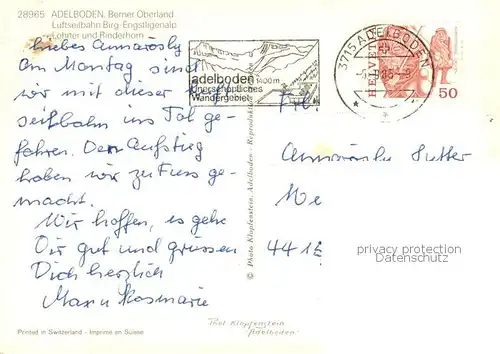 28965 ADELBODEN, Berner Oberland
Luftseilbahn Birg-Engstligenalp
Lohner und Rinderhorn
Liebes Annarösly
Am Montag sind
wir mit dieser
seilbahn ins Tal ge-
fahren. Den Aufstieg
haben wir zu Fuss ge-
macht.
Wir hoffen, es gehe
Dir gut und grüssen
Dich herzlich
Max u Rosmarie
Printed in Switzerland - Imprimé en Suisse
© Photo Klopfenstein, Adelboden - Reproduktion
adelboden 1400 m
unerschöpfliches
Wandergebiet
3715 ADELBODEN
HELVETIA
50
Frl.
Sutter
privacy protection
Datenschutz
Klopfenstein
Adelboden